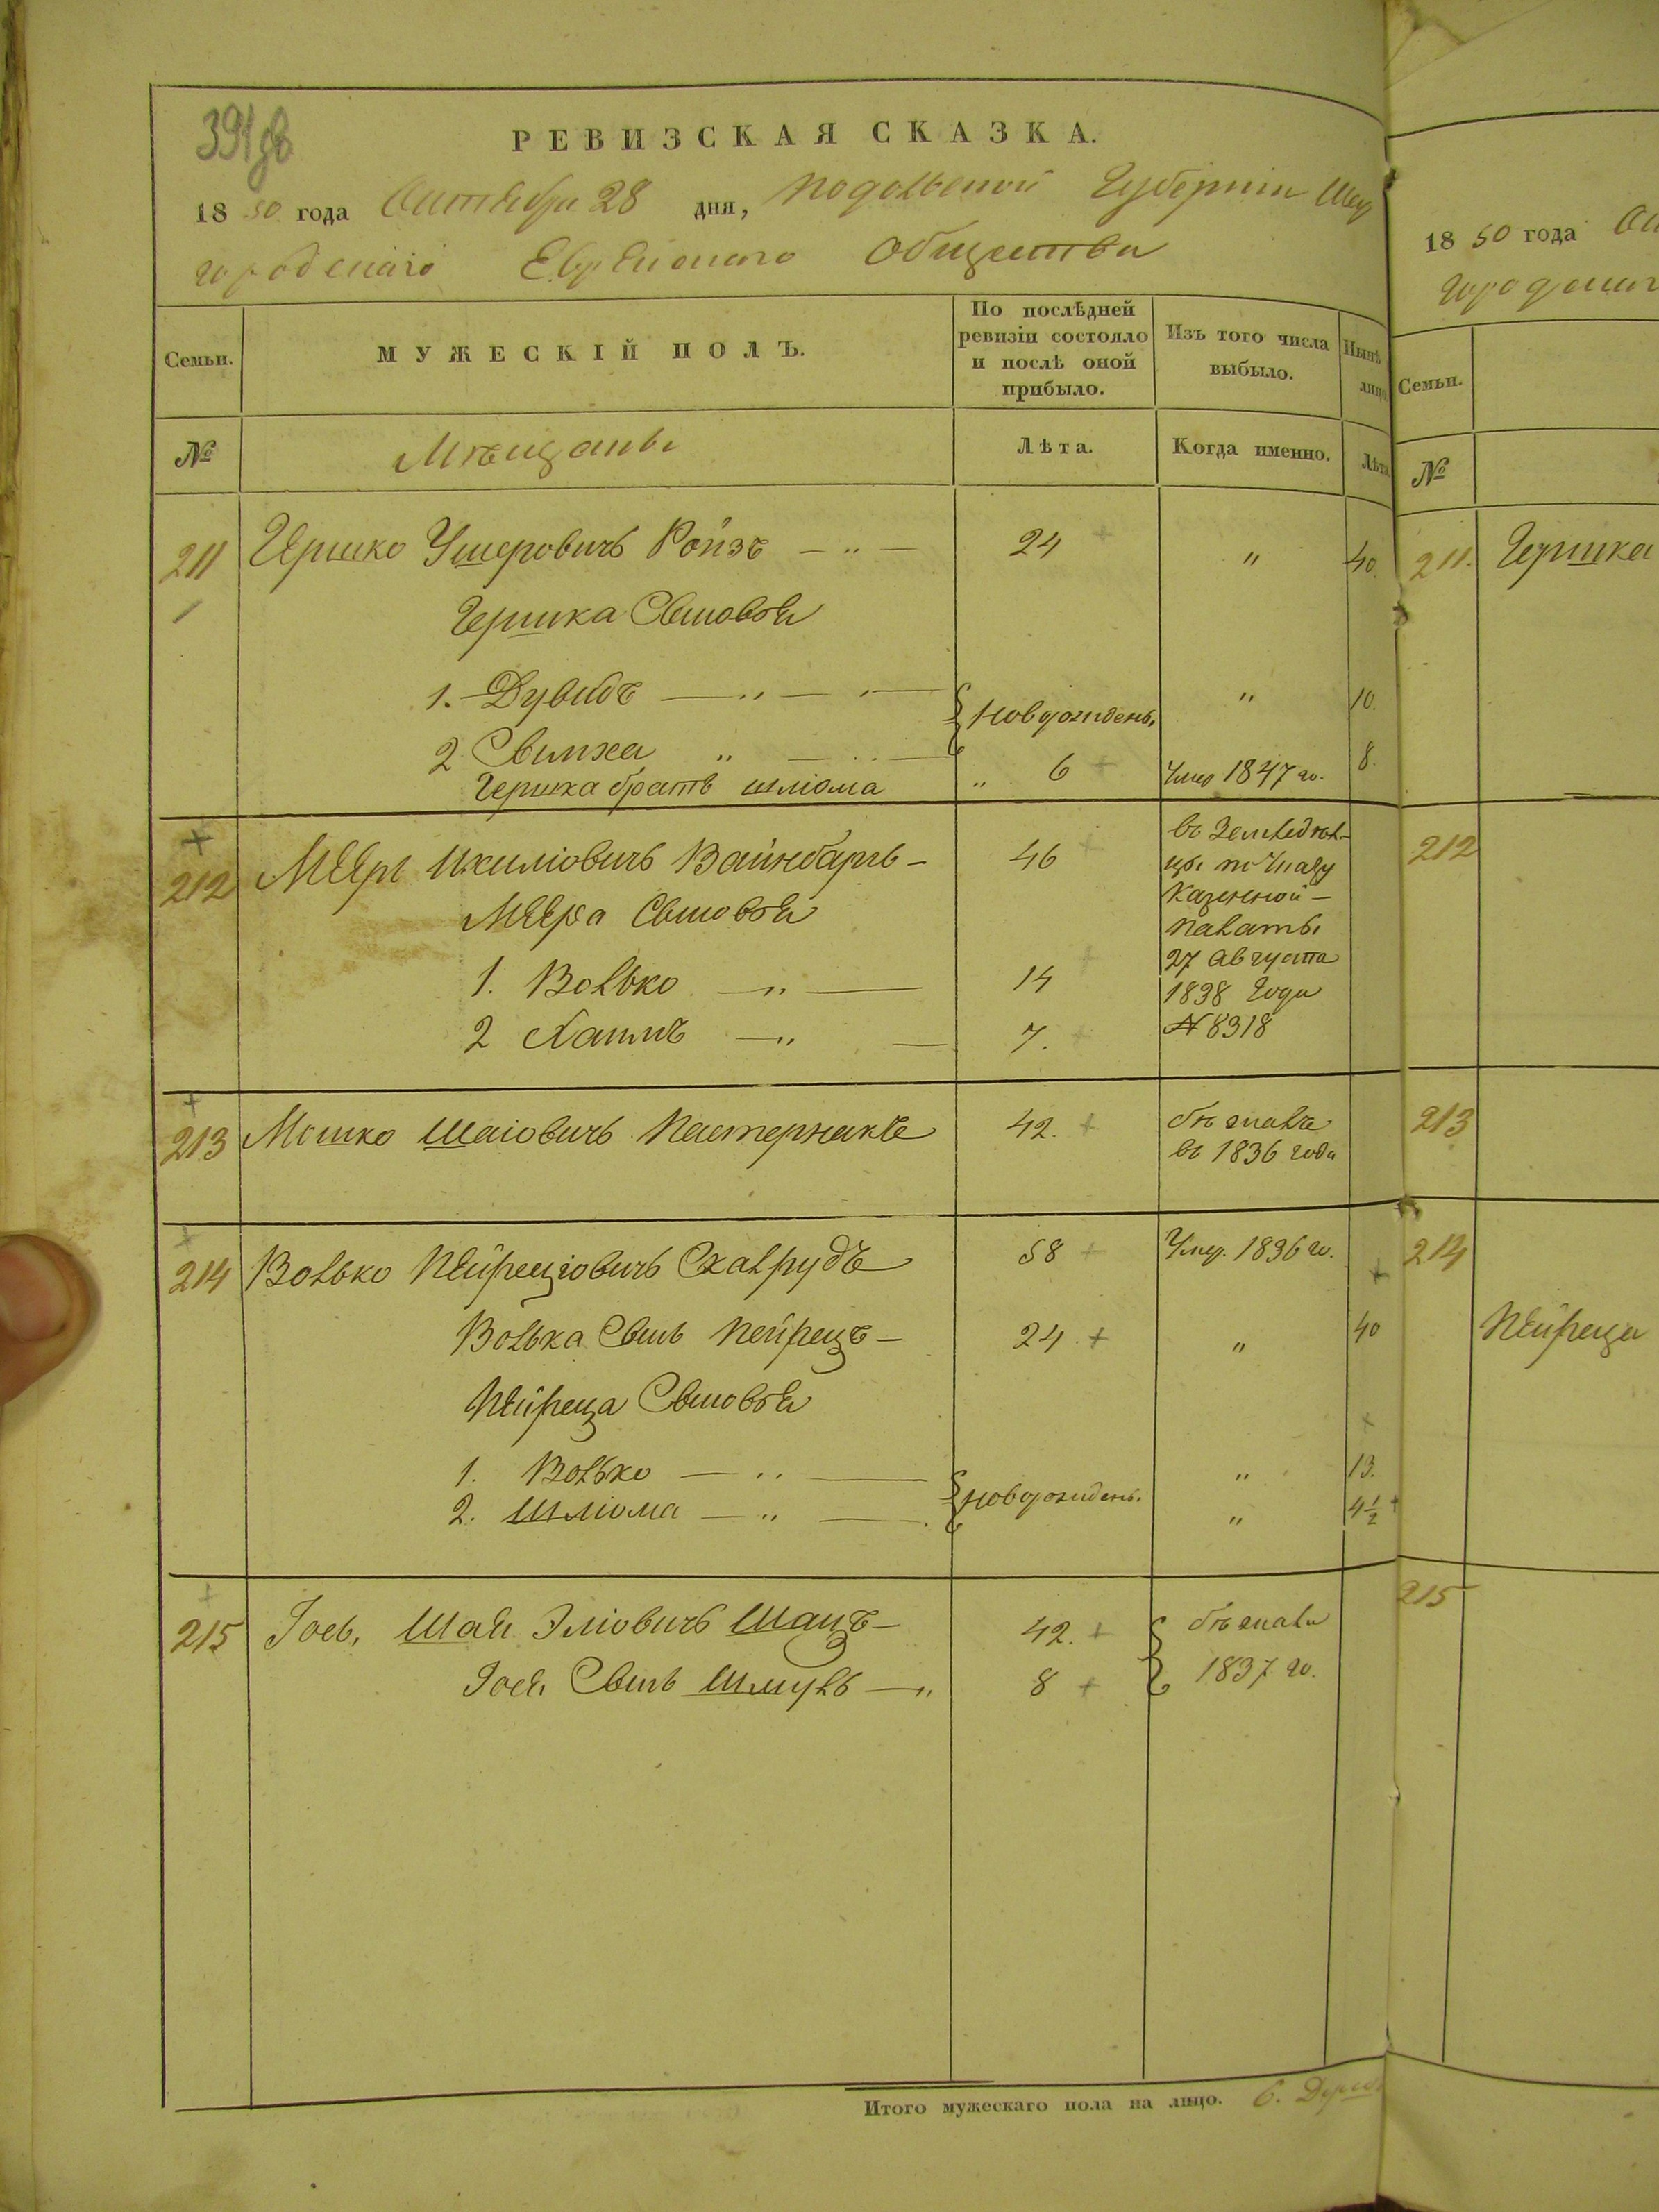 391 об
РЕВИЗСКАЯ СКАЗКА.
1850 года Октября 28 дня, Подольской Губернии Шар
городскаго Еврейского Общества
Семьи.
МУЖЕСКІЙ ПОЛЪ.
По послѣдней ревизіи состояло и послѣ оной прибыло.
Изъ того числа выбыло.
Нынѣ лицо
№
Мѣщаны
Лѣта.
Когда именно.
Лѣта
211 Гершко Ушеровичъ Ройзъ — „ — 24 „ 40.
Гершка Сыновья
1. Дувидъ — „ — Новорожден. „ 10.
2 Симха „ — 8.
Гершка братъ Шліома „ 6 Умер 1847 го.
212 Меер Ихиліовичъ Вайнбаргъ — 46 въ Земледѣл-
цы по Указу
Казенной —
Палаты
27 Августа
1838 Года
N 8318
Меера Сыновья
1. Волько — „ — 14
2 Хаимъ — „ — 7.
213 Мошко Шаіовичъ Пастернакъ 42. бѣжалъ
въ 1836 года
214 Волько Пейреціовичъ Скалрудъ 58 Умер. 1836 го.
Волька Сынъ Пейрецъ — 24. „ 40
Пейреца Сыновья
1. Волько — „ — Новорожден. „ 13.
2. Шліома — „ — „ 4½
215 Іось, Шая Эліовичъ Шацъ — 42. бѣжали
1837 го.
Іося Сынъ Шмуль — „ 8
Итого мужескаго пола на лицо. 6.
1850 года
Семьи.
№
211. Гершка
212
213
214
Пейреца
215